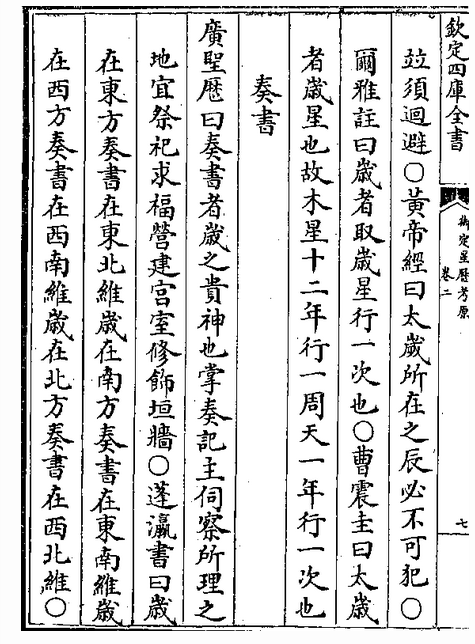 欽定四庫全書
御定星歴考原
卷二
七
竝須迴避○黃帝經曰太歲所在之辰必不可犯○
爾雅註曰歲者取歲星行一次也○曹震圭曰太歲
者歲星也故木星十二年行一周天一年行一次也
奏書
廣聖歴曰奏書者歲之貴神也掌奏記主伺察所理之
地宜祭祀求福營建宮室修飾垣牆○蓬瀛書曰歲
在東方奏書在東北維歲在南方奏書在東南維歲
在西方奏書在西南維歲在北方奏書在西北維○